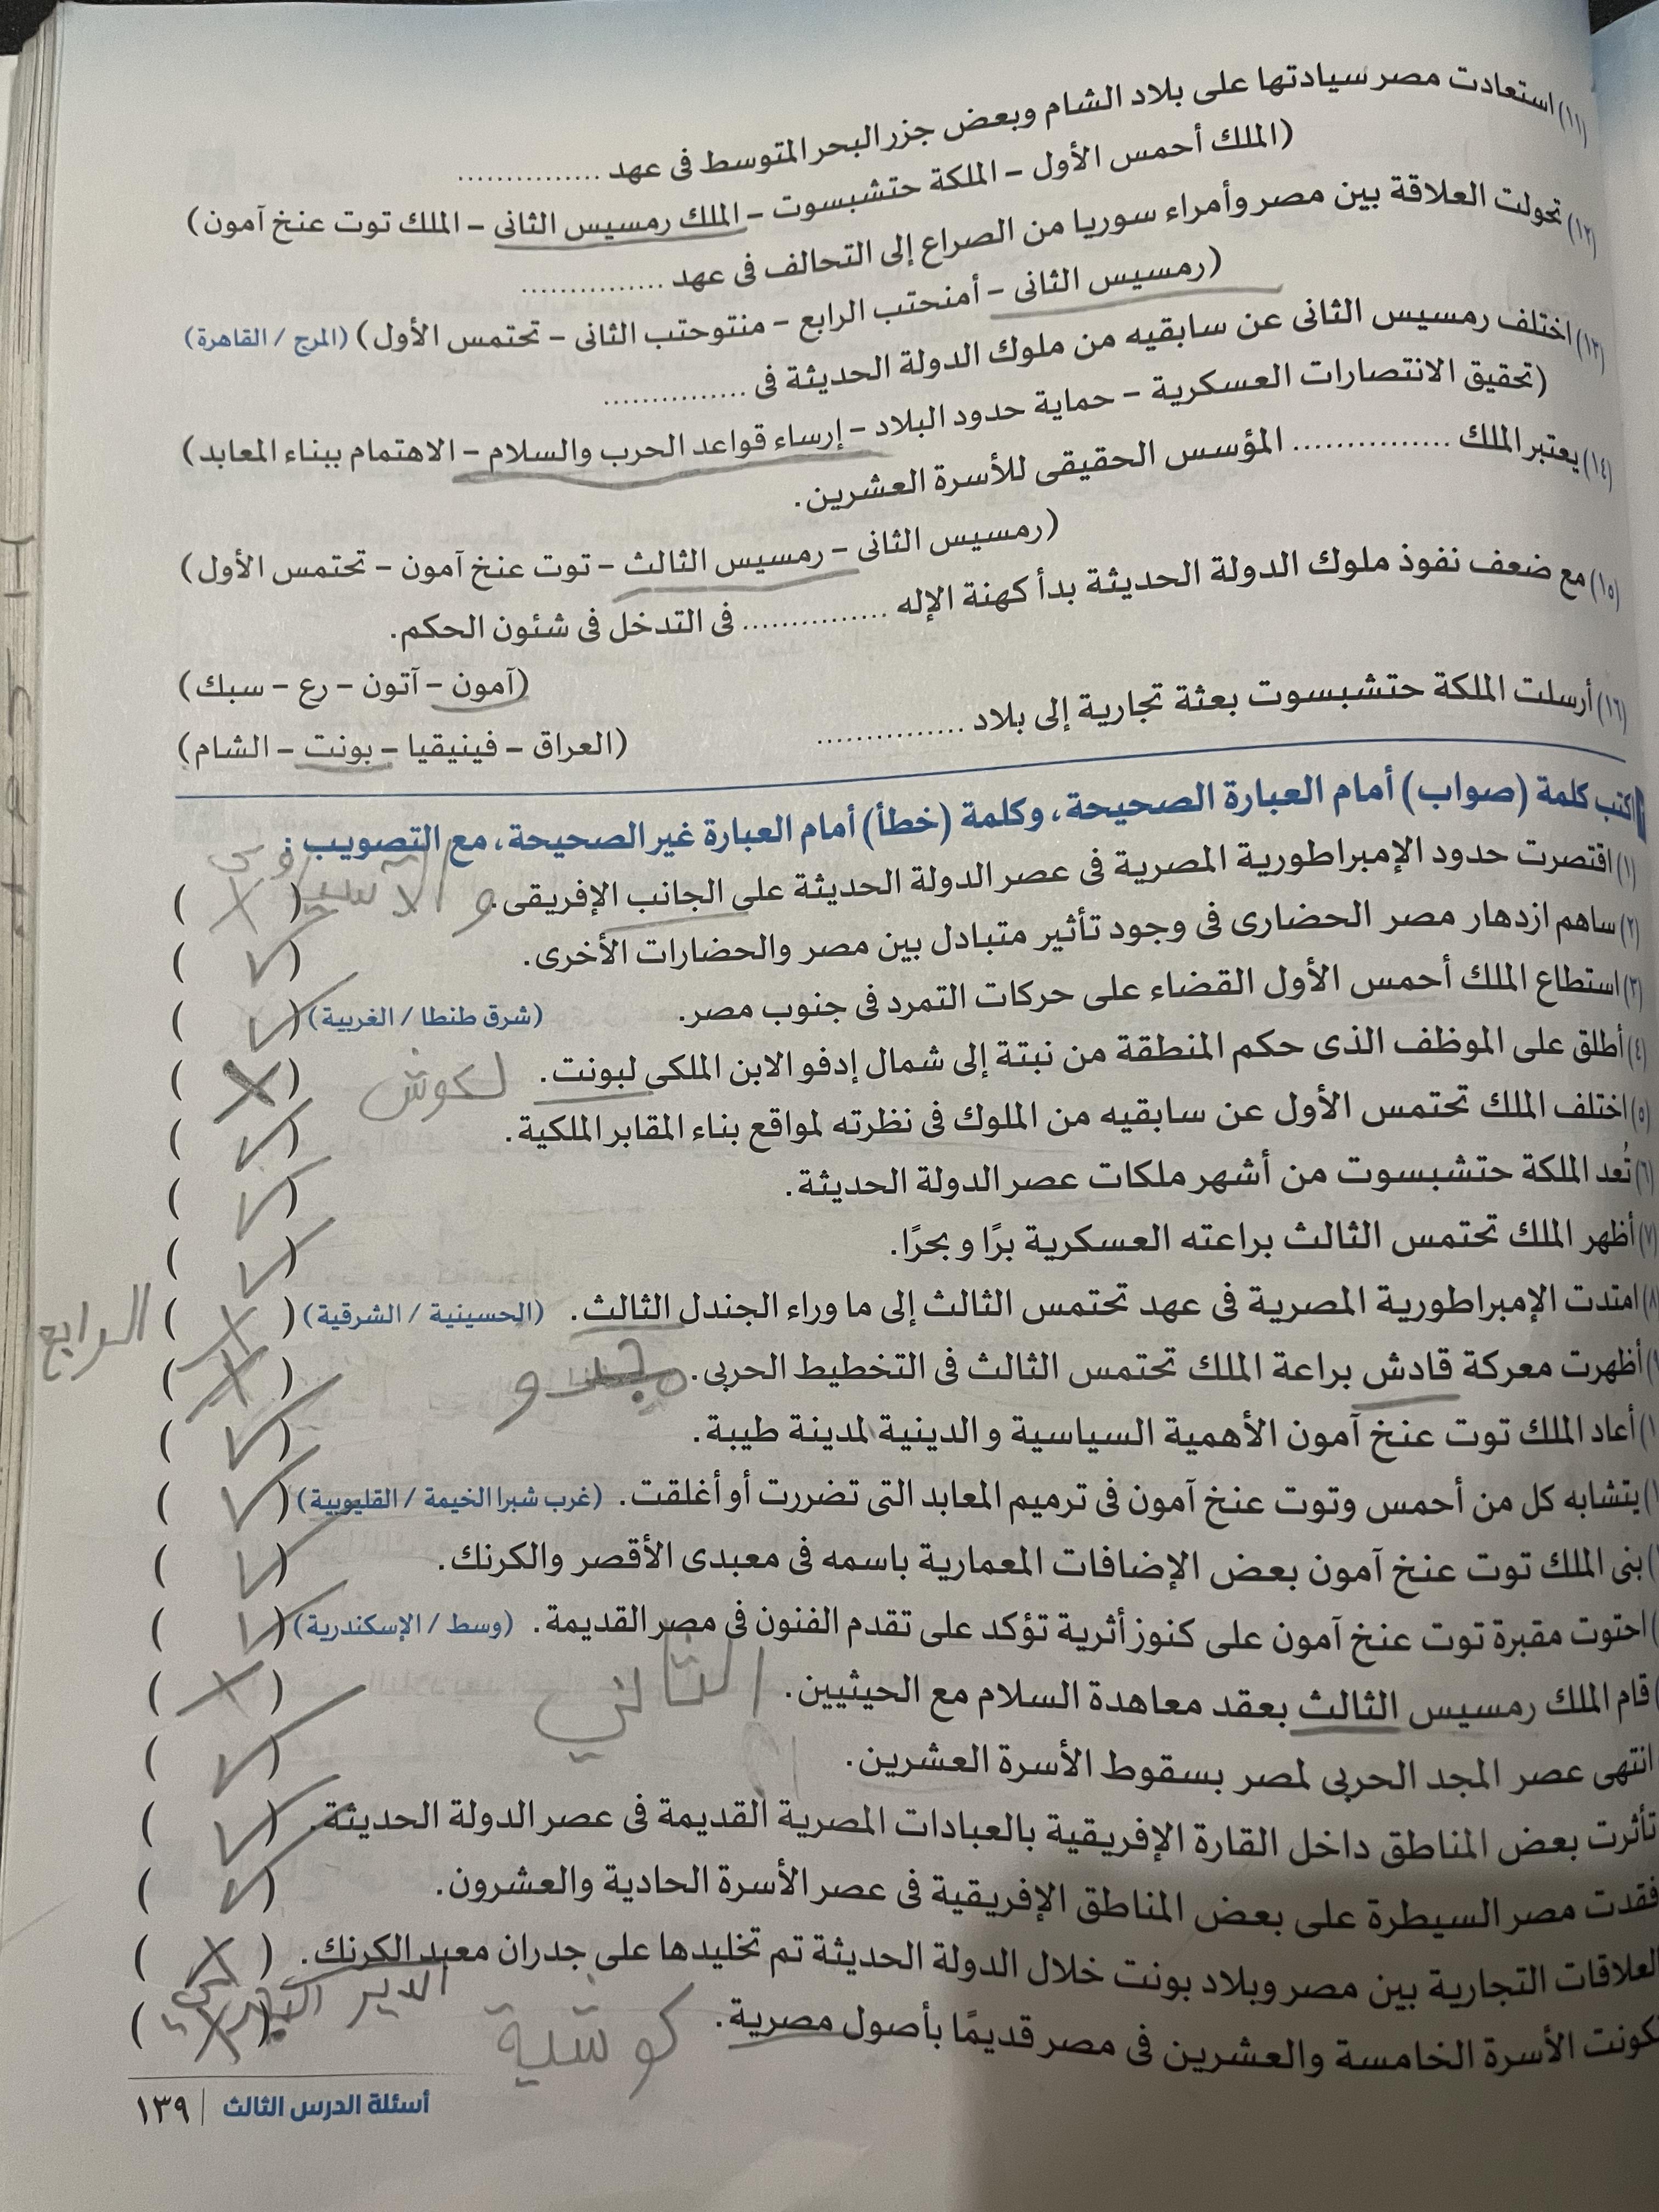 (١١) استعادت مصر سيادتها على بلاد الشام وبعض جزر البحر المتوسط فى عهد ...............
(الملك أحمس الأول – الملكة حتشبسوت – الملك رمسيس الثانى – الملك توت عنخ آمون)
(١٢) تحولت العلاقة بين مصر وأمراء سوريا من الصراع إلى التحالف فى عهد ...............
(رمسيس الثانى – أمنحتب الرابع – منتوحتب الثانى – تحتمس الأول) (المرج / القاهرة)
(١٣) اختلف رمسيس الثانى عن سابقيه من ملوك الدولة الحديثة فى ...............
(تحقيق الانتصارات العسكرية – حماية حدود البلاد – إرساء قواعد الحرب والسلام – الاهتمام ببناء المعابد)
(١٤) يعتبر الملك ............... المؤسس الحقيقى للأسرة العشرين.
(رمسيس الثانى – رمسيس الثالث – توت عنخ آمون – تحتمس الأول)
(١٥) مع ضعف نفوذ ملوك الدولة الحديثة بدأ كهنة الإله ............... فى التدخل فى شئون الحكم.
(آمون – آتون – رع – سبك)
(١٦) أرسلت الملكة حتشبسوت بعثة تجارية إلى بلاد ...............
(العراق – فينيقيا – بونت – الشام)
اكتب كلمة (صواب) أمام العبارة الصحيحة، وكلمة (خطأ) أمام العبارة غير الصحيحة، مع التصويب :
(١) اقتصرت حدود الإمبراطورية المصرية فى عصر الدولة الحديثة على الجانب الإفريقى. والآسيوى ( X )
(٢) ساهم ازدهار مصر الحضارى فى وجود تأثير متبادل بين مصر والحضارات الأخرى. ( ✓ )
(٣) استطاع الملك أحمس الأول القضاء على حركات التمرد فى جنوب مصر. (شرق طنطا / الغربية) ( ✓ )
(٤) أطلق على الموظف الذى حكم المنطقة من نبتة إلى شمال إدفو الابن الملكى لبونت. لكوش ( X )
(٥) اختلف الملك تحتمس الأول عن سابقيه من الملوك فى نظرته لمواقع بناء المقابر الملكية. ( ✓ )
(٦) تُعد الملكة حتشبسوت من أشهر ملكات عصر الدولة الحديثة. ( ✓ )
(٧) أظهر الملك تحتمس الثالث براعته العسكرية برًا وبحرًا. ( ✓ )
(٨) امتدت الإمبراطورية المصرية فى عهد تحتمس الثالث إلى ما وراء الجندل الثالث. (الحسينية / الشرقية) ( X ) الرابع
) أظهرت معركة قادش براعة الملك تحتمس الثالث فى التخطيط الحربى. مجدو ( X )
) أعاد الملك توت عنخ آمون الأهمية السياسية والدينية لمدينة طيبة. ( ✓ )
) يتشابه كل من أحمس وتوت عنخ آمون فى ترميم المعابد التى تضررت أو أغلقت. (غرب شبرا الخيمة / القليوبية) ( ✓ )
) بنى الملك توت عنخ آمون بعض الإضافات المعمارية باسمه فى معبدى الأقصر والكرنك. ( ✓ )
) احتوت مقبرة توت عنخ آمون على كنوز أثرية تؤكد على تقدم الفنون فى مصر القديمة. (وسط / الإسكندرية) ( ✓ )
) قام الملك رمسيس الثالث بعقد معاهدة السلام مع الحيثيين. الثاني ( X )
انتهى عصر المجد الحربى لمصر بسقوط الأسرة العشرين. ( ✓ )
تأثرت بعض المناطق داخل القارة الإفريقية بالعبادات المصرية القديمة فى عصر الدولة الحديثة. ( ✓ )
فقدت مصر السيطرة على بعض المناطق الإفريقية فى عصر الأسرة الحادية والعشرون. ( ✓ )
العلاقات التجارية بين مصر وبلاد بونت خلال الدولة الحديثة تم تخليدها على جدران معبد الكرنك. ( X )
الدير البحرى
تكونت الأسرة الخامسة والعشرين فى مصر قديمًا بأصول مصرية. كوشية ( X )
أسئلة الدرس الثالث | ١٣٩